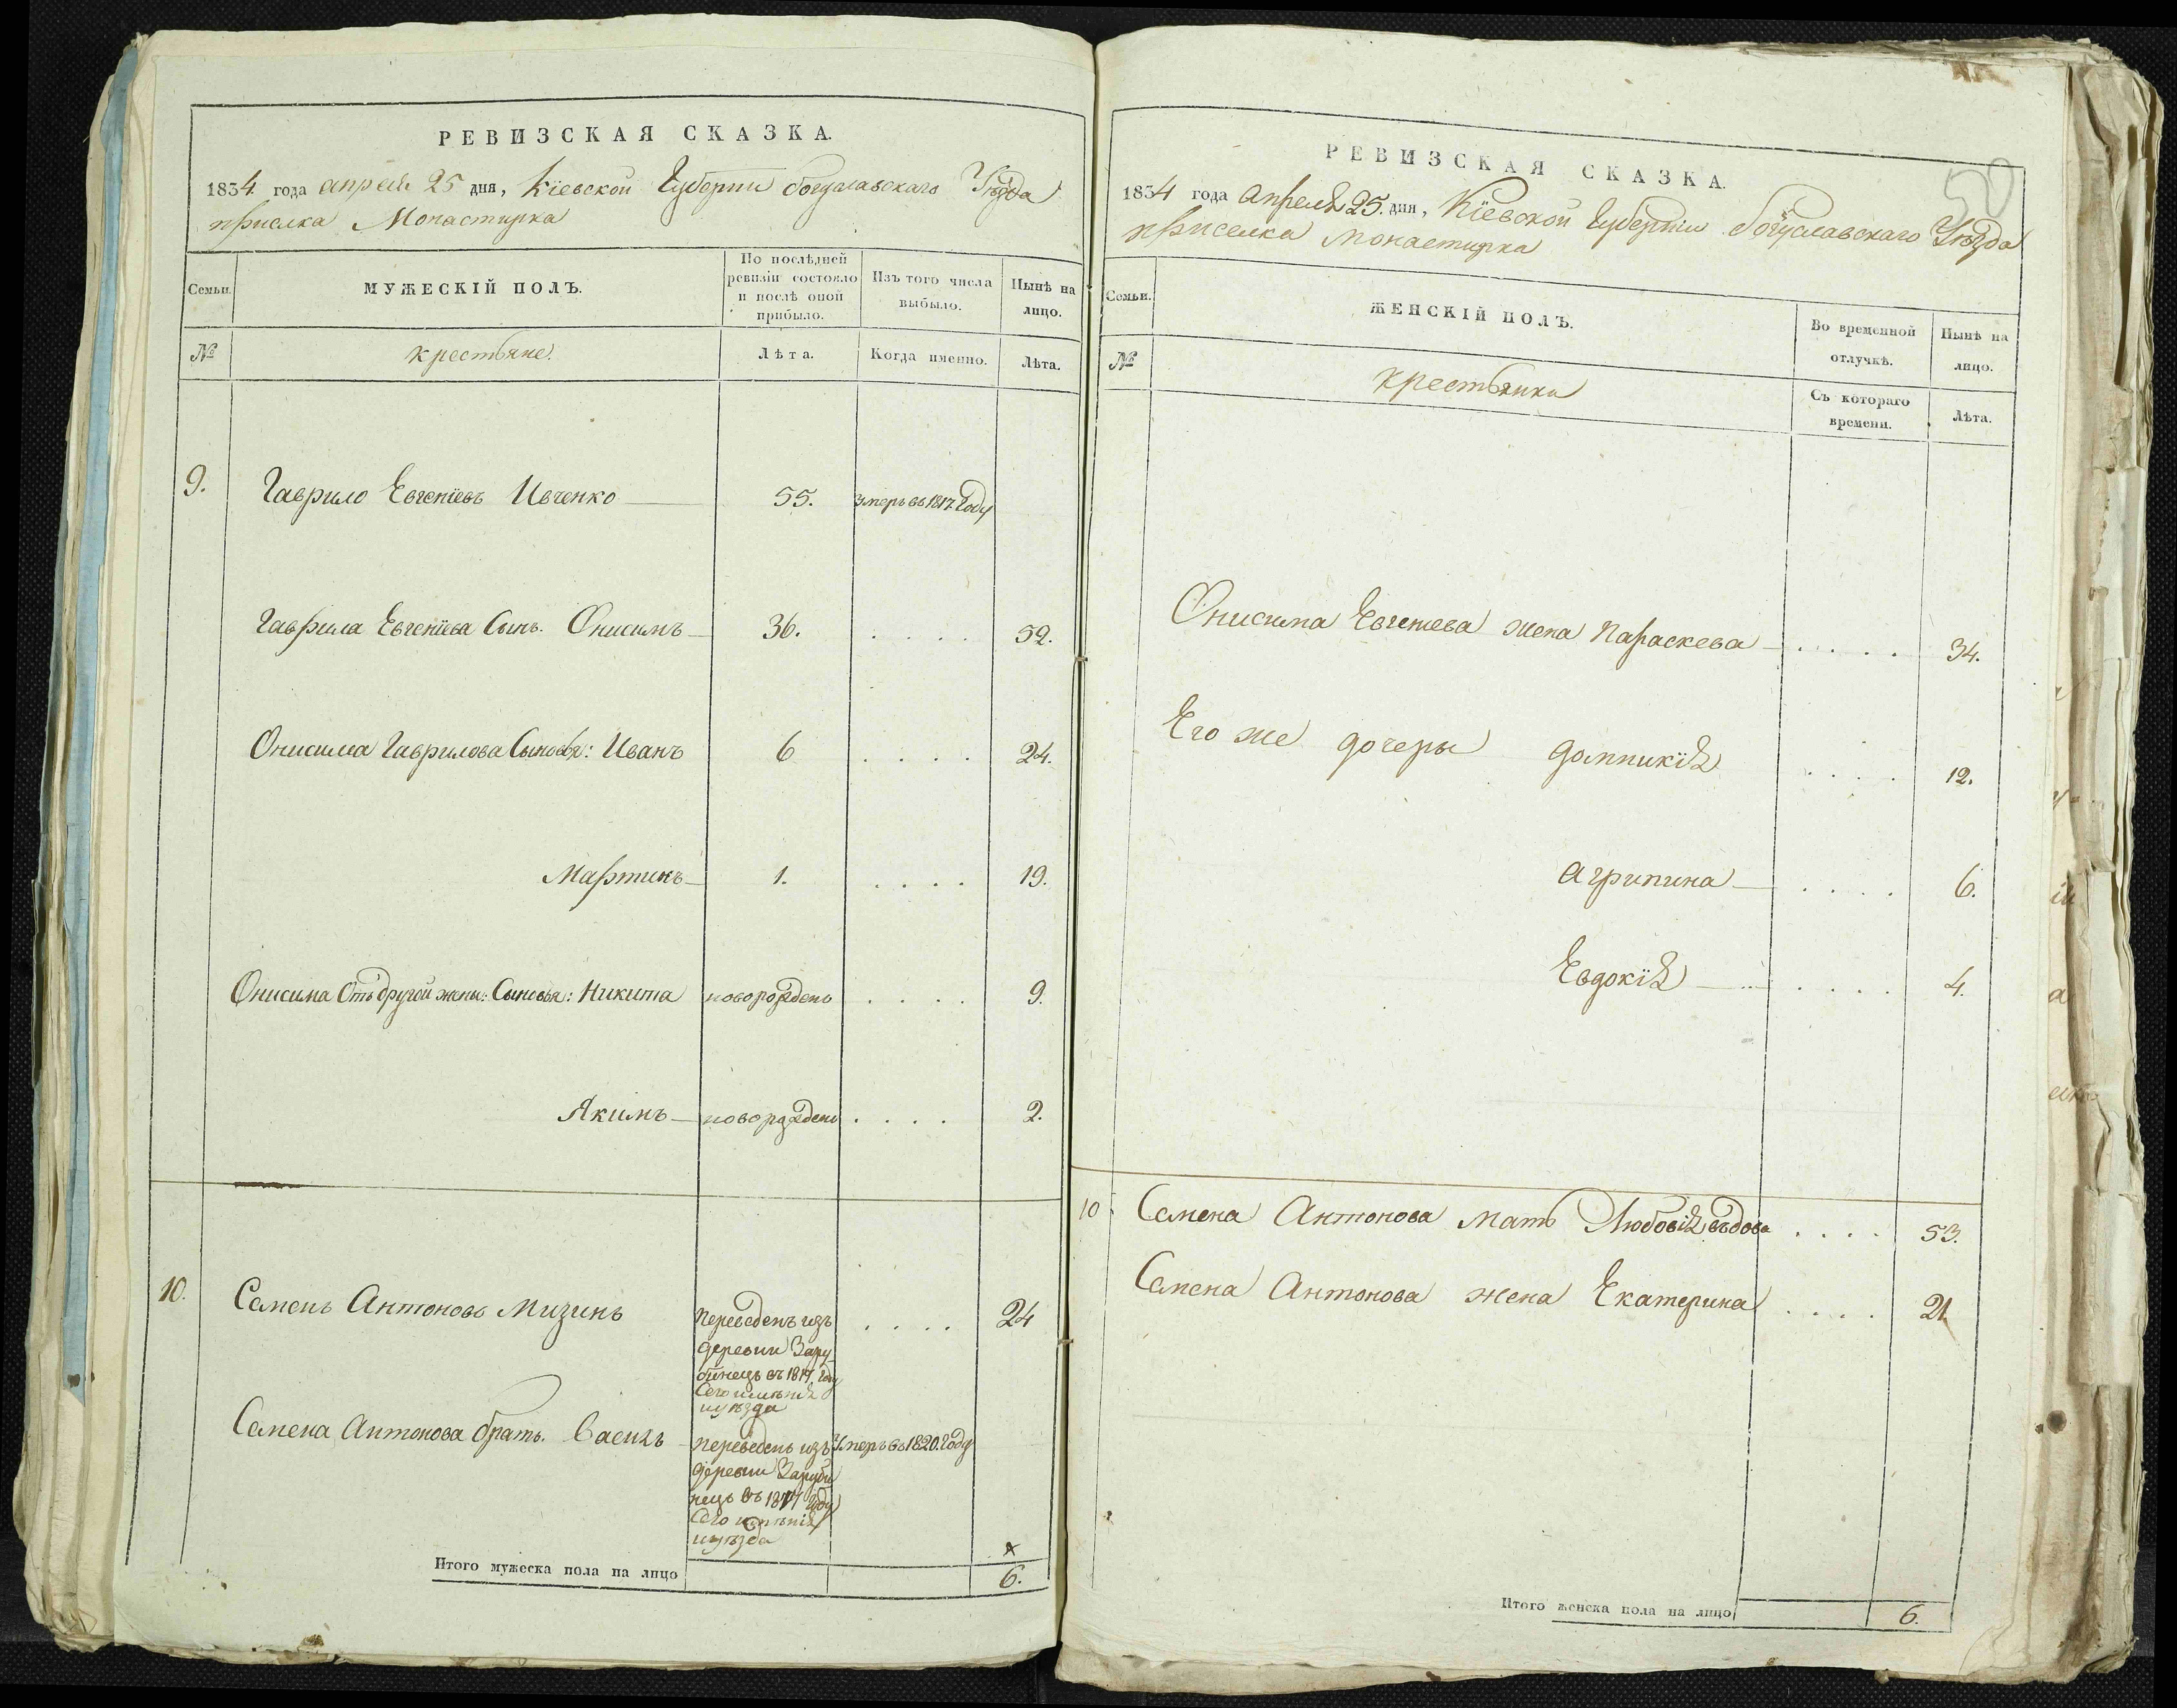 РЕВИЗСКАЯ СКАЗКА.
1834 года апреля 25 дня, Кіевской Губерніи богуславскаго Уѣзда
приселка Монастирка
Семьи.
МУЖЕСКІЙ ПОЛЪ.
По послѣдней
ревизіи состояло
и послѣ оной
прибыло.
Изъ того числа
выбыло.
Нынѣ на
лицо.
№
крестьяне.
Лѣта.
Когда именно.
Лѣта.
9. Гаврило Евгеніевъ Ивченко 55. Умеръ въ 1817. Году
Гаврила Евгеніева Сынъ. Онисимъ 36. . . . . 52.
Онисима Гаврилова Сыновья: Иванъ 6 . . . . 24.
Мартинъ 1. . . . . 19.
Онисима Отъ другой жены: Сыновья: Никита новорожденъ . . . . 9.
Якимъ новорожденъ . . . . 2.
10. Семенъ Антоновъ Мизинъ Переведенъ изъ . . . . 24
деревни Зару-
бинецъ въ 1817. Году
Сего имѣнія
и уѣзда
Семена Антонова братъ. Василь переведенъ изъ Умеръ въ 1820. Году
деревни Заруби
нецъ въ 1817 Году
Сего имѣнія
и уѣзда
Итого мужеска пола на лицо 6.
50
РЕВИЗСКАЯ СКАЗКА.
1834 года апреля 25. дня, Кіевской Губерніи богуславскаго Уѣзда
приселка Монастирка
Семьи.
ЖЕНСКІЙ ПОЛЪ.
Во временной
отлучкѣ.
Нынѣ на
лицо.
№
крестьянки
Съ котораго
времени.
Лѣта.
Онисима Евгениева жена Параскева . . . . 34.
Его же дочеры Домникія . . . . 12.
Агрипина . . . . 6.
Евдокія . . . . 4.
10 Семена Антонова Мать Любовія въдова . . . . 53.
Семена Антонова жена Екатерина . . . . 21.
Итого женска пола на лицо 6.